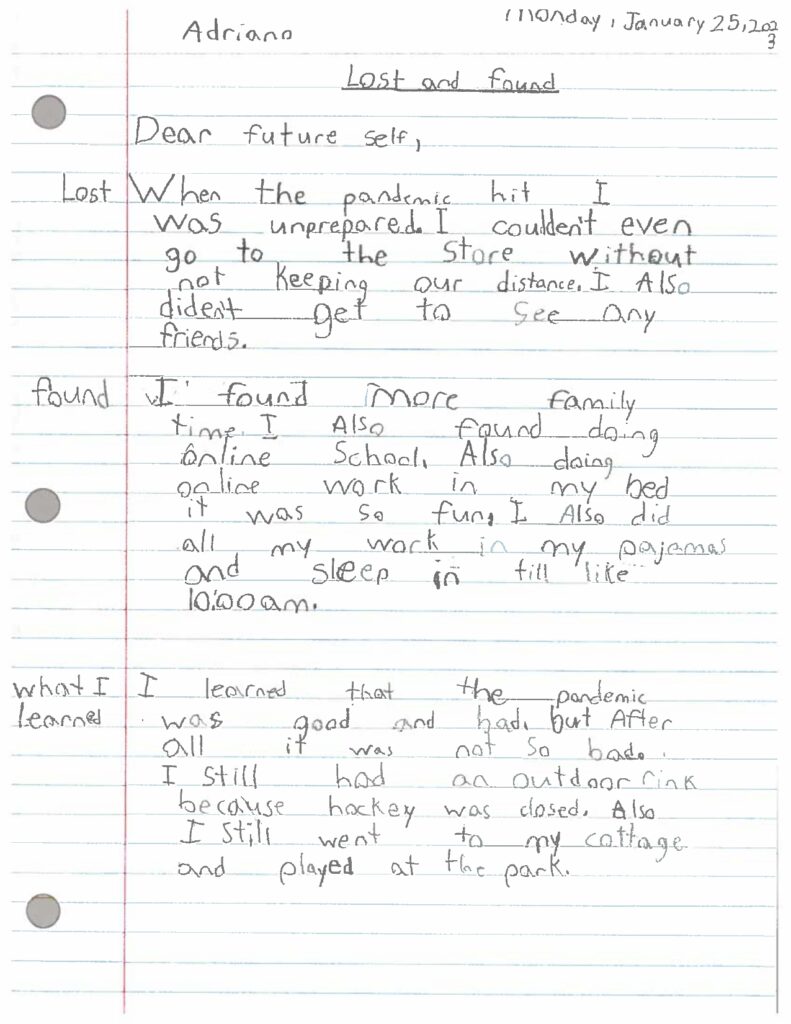 Adriano
Monday, January 25, 202
3
Lost and found
Dear future self,
Lost When the pandemic hit I
was unprepared. I couldden't even
go to the store without
not keeping our distance. I Also
diden't get to see any
friends.
found I found more family
time. I Also found doing
online School. Also doing
online work in my bed
it was so fun, I Also did
all my work in my pajamas
and sleep in till like
10:00am.
what I I learned that the pandemic
learned was good and bad, but After
all it was not so bad.
I still had an outdoor rink
because hockey was closed. Also
I still went to my cottage
and played at the park.